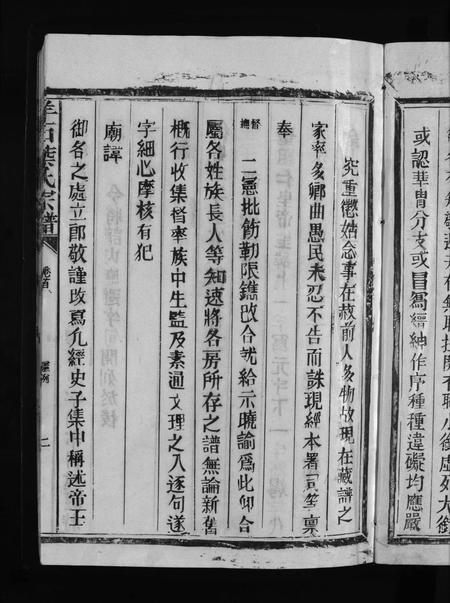 或認華胄分支或冒縉紳作序種種違礙均應嚴
究重懲姑念事在赦前人多物故現在藏譜之
家率多鄉曲愚民未忍不告而誅現經本署司等稟
奉
督
撫
二憲批飭勒限鐫改合就給示曉諭爲此仰合
屬各姓族長人等知速將各房所存之譜無論新舊
概行收集督率族中生監及素通文理之人逐句遂
字細心摩核有犯
廟諱
御名之處立即敬謹改寫凡經史子集中稱述帝王
羊石葉氏宗譜
卷首
二